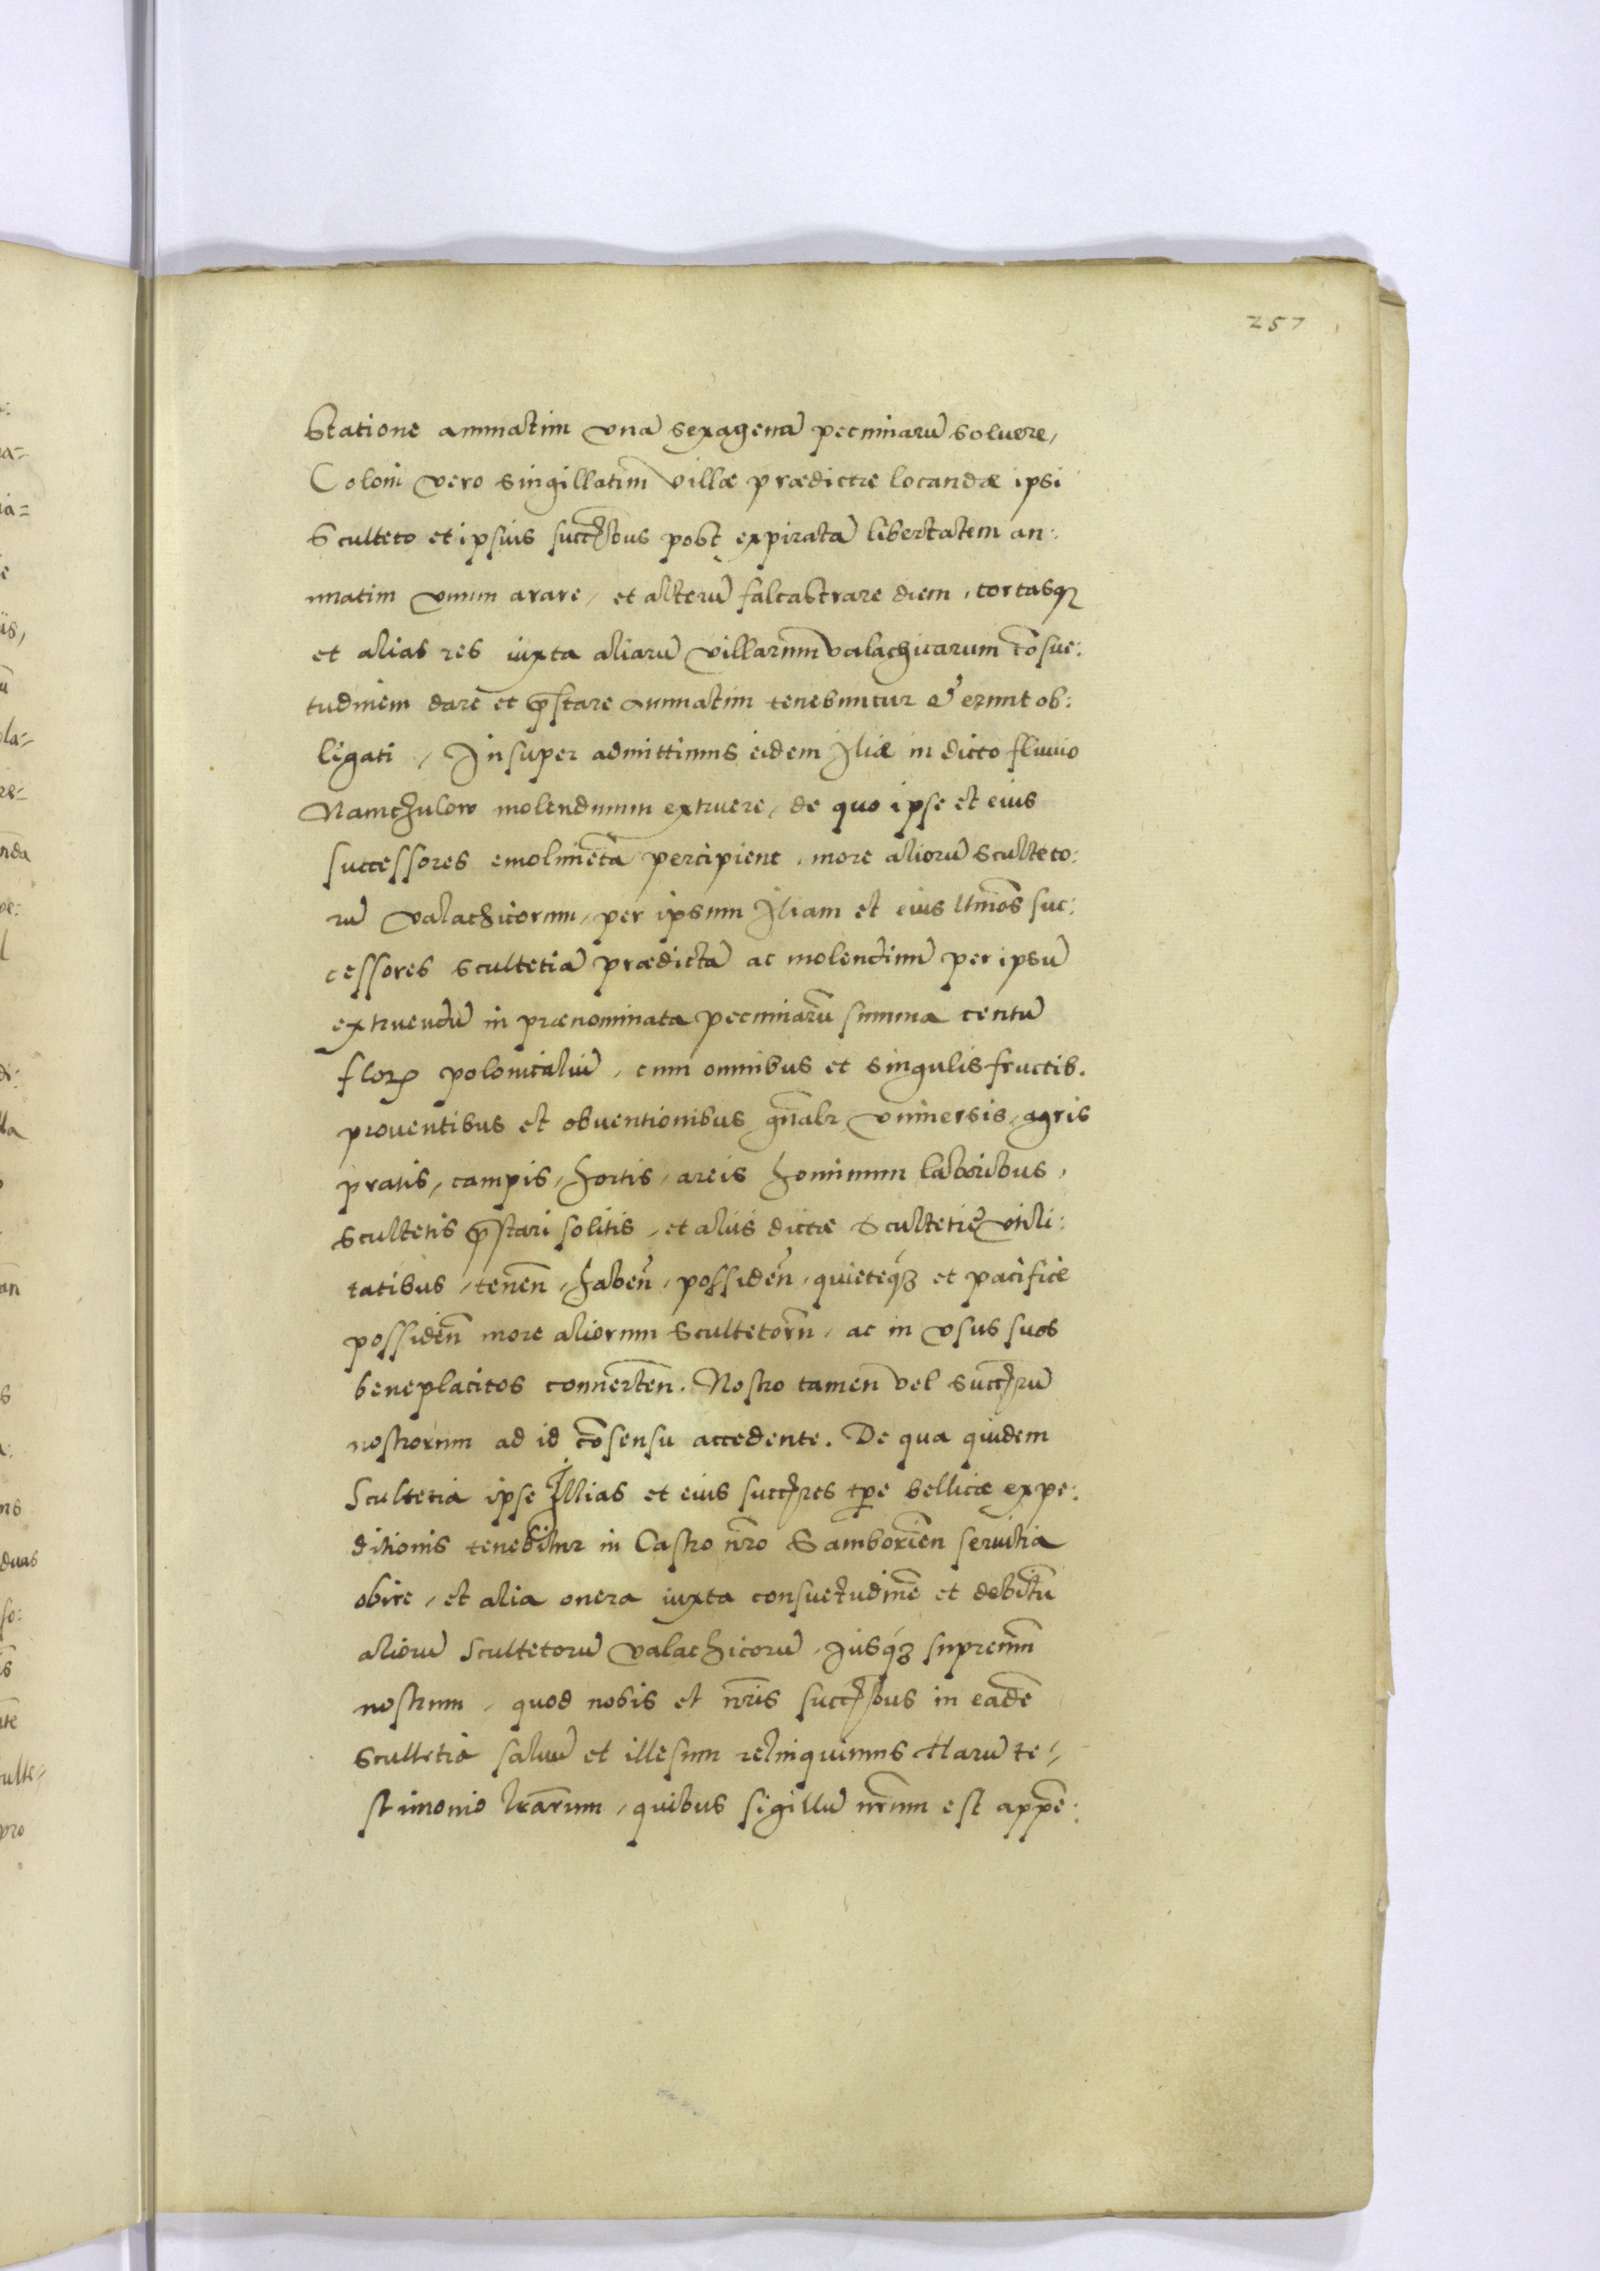 257
Statione annuatim vnā sexagenā pecuniarū soluere,
Coloni vero singillatim villæ prædictæ locandæ ipsi
Sculteto et ipsius succr̄ibus post expiratā libertatem an:
nuatim vnum arare, et alterū falcastrare diem, tortasq3
et alias res iuxta aliarū villarum valachicarum cōsue:
tudinem dare et p̄stare annuatim tenebuntur et erunt ob:
ligati, Insuper admittimus eidem Iliæ in dicto fluuio
Namchulow molendinum extruere, de quo ipse et eius
successores emolimēta percipient, more aliorū sculteto:
rū valachicorum, per ipsum Iliam et eius ltīmos suc:
cessores scultetiā prædictā ac molendinū per ipsū
extruendū in prænominata pecuniarū summa centū
flor. polonicaliū, cum omnibus et singulis fructib.
prouentibus et obuentionibus gn̄alr vniuersis, agris
pratis, campis, hortis, areis hominum laboribus,
scultetis p̄stari solitis, et aliis dictæ Scultetię vtili:
tatibus, tenen̄, haben̄, possiden̄, quieteq3 et pacifice
possiden̄ more aliorum scultetorū, ac in vsus suos
beneplacitos conuerten̄. Nostro tamen vel succr̄rū
nostrorum ad id cōsensu accedente. De qua quidem
Scultetia ipse Illias et eius succr̄res tp̄e bellicæ expe:
ditionis tenebitur in Castro nr̄o Samborien̄ seruitia
obire, et alia onera iuxta consuetudinē et debitū
aliorū scultetorū valachicorū, Iusq3 supremū
nostrum, quod nobis et nr̄is succr̄ibus in eadē
scultetia saluū et illesum relinquimus Harū te,
stimonio lr̄arum, quibus sigillū nr̄um est appē: